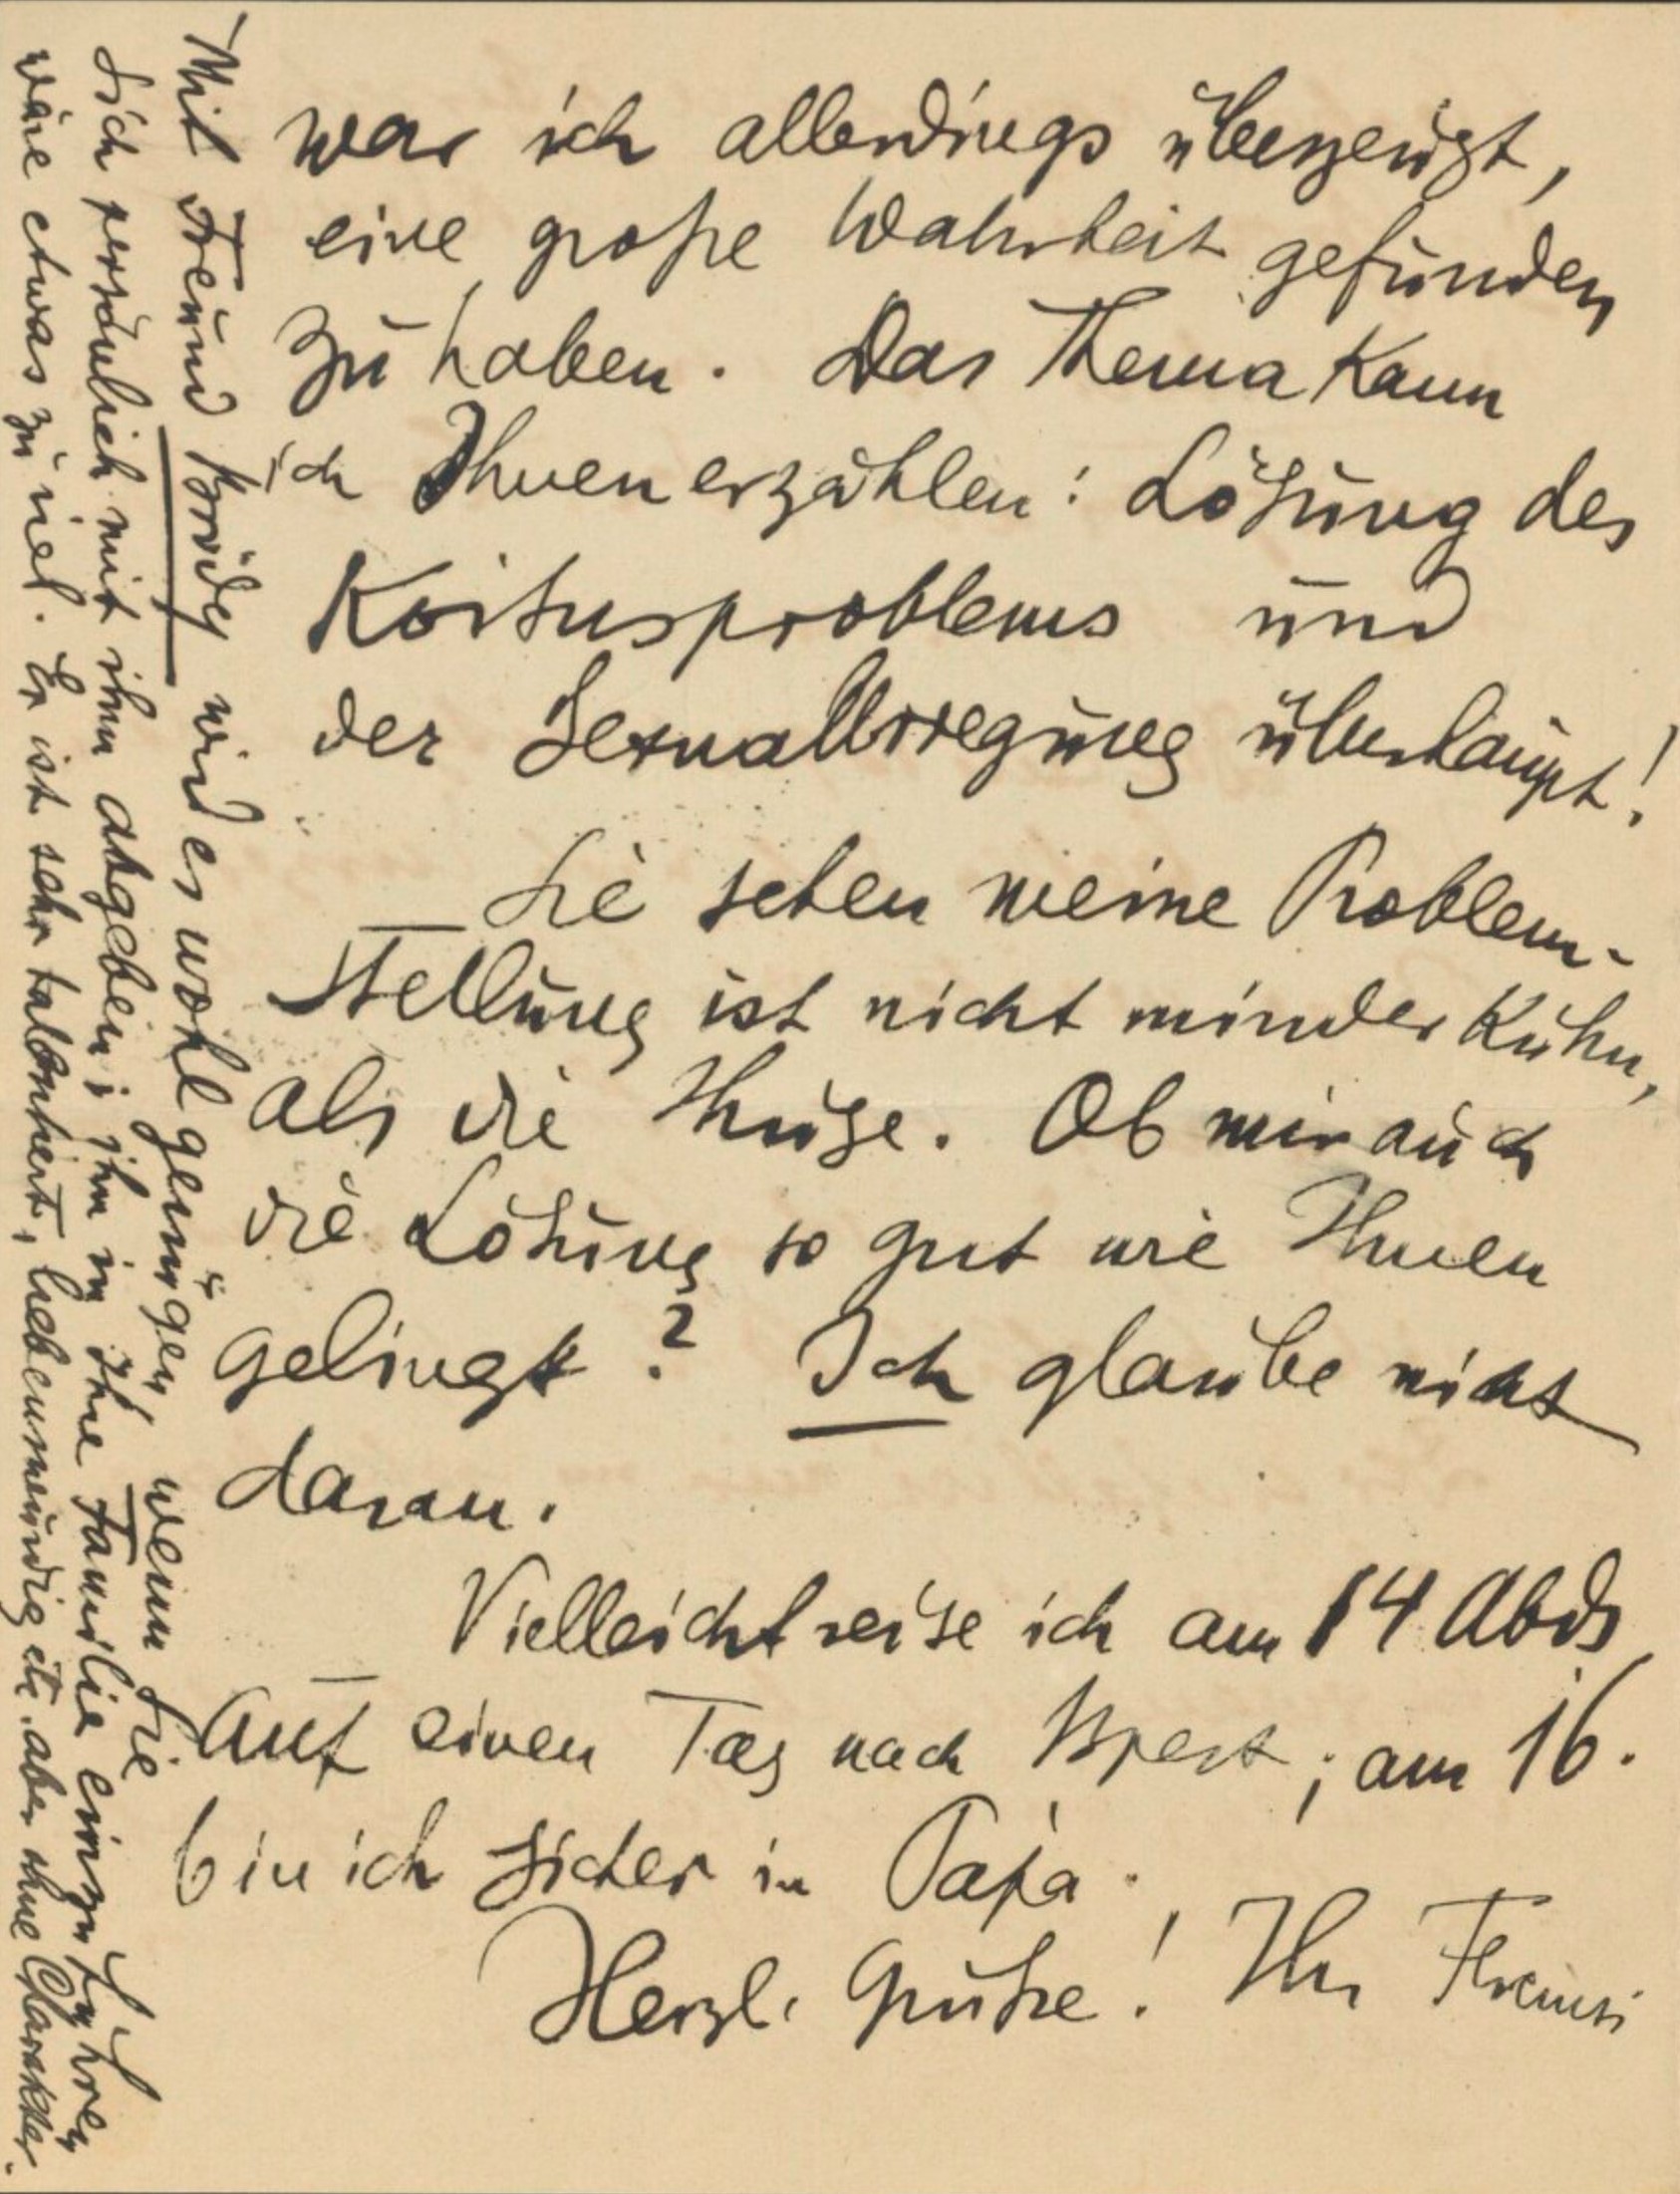 war ich allerdings überzeugt,
eine große Wahrheit gefunden
zu haben. Das Thema kann
ich Ihnen erzählen: Lösung des
Koitusproblems und
der Sexualerregung überhaupt!
Sie sehen meine Problem-
stellung ist nicht minder kühn,
als die Ihrige. Ob mir auch
die Lösung so gut wie Ihnen
gelingt? Ich glaube nicht
daran.
Vielleicht reise ich am 14 Abds
auf einen Tag nach Bpest; am 16.
bin ich sicher in Pápa.
Herzl. Grüße! Ihr Ferenczi
Mit Freund Bródy wird es wohl genügen, wenn Sie
sich persönlich mit ihm abgeben; ihn in Ihre Familie einzuführen
wäre etwas zu viel. Er ist sehr talentiert, liebenswürdig etc. aber ohne Charakter.